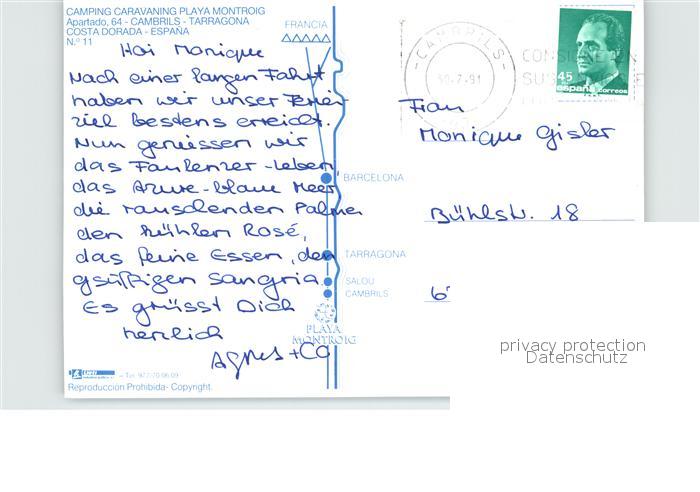 CAMPING CARAVANING PLAYA MONTROIG
Apartado, 64 - CAMBRILS - TARRAGONA
COSTA DORADA - ESPAÑA
N.º 11
FRANCIA
Hoi Monique
Nach einer langen Fahrt
haben wir unser Ferien
ziel bestens erreicht.
Nun geniessen wir
das Faulenzer-Leben,
das Azure-blaue Meer
die rauschenden Palmen
den kühlen Rosé,
das feine Essen, den
gsüffigen Sangria.
Es grüsst Dich
herzlich
Agnes + Co
BARCELONA
TARRAGONA
SALOU
CAMBRILS
PLAYA
MONTROIG
- Tel. 977/70 06 09
Reproducción Prohibida - Copyright.
- CAMBRILS -
30-7-91
45
españa correos
Frau
Monique Gisler
Bühlstr. 18
6
privacy protection
Datenschutz